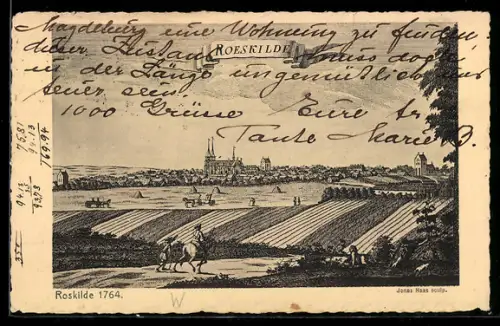 Magdeburg eine Wohnung zu finden
dieser Zustand muss doch
in der Länge ungemütlich und
teuer sein.
1000 Grüsse Eure tr.
Tante Marie B.
ROESKILDE
75.81
94.13
769.94
94.13
93.93
35
Roskilde 1764.
W
Jonas Haas sculp.